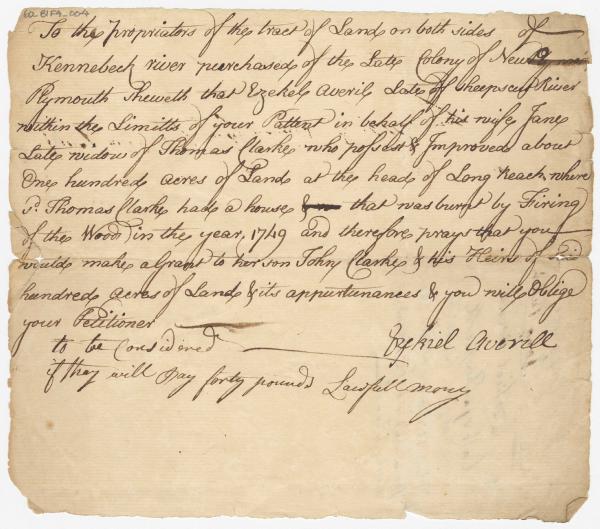 Co_B1F9_004
To the propriators of the tract of Land on both sides of
Kennebeck river purchased of the Late Colony of New
Plymouth Sheweth that Ezekel Averil Late of Sheepscut River
within the Limitts of your Pattent in behalf of his wife Jane
Late widow of Thomas Clarke who possest & Improved about
One hundred acres of Land at the head of Long Reach where
sd. Thomas Clarke had a house that was burnt by Firing
of the Wood in the year, 1749 and therefore prays that you
would make a Grant to her son John Clarke & his Heirs of
hundred acres of Land & its appurtunances & you will Oblige
your Petitioner
to be Considered Ezekiel Averill
if they will pay forty pounds Lawfull mony